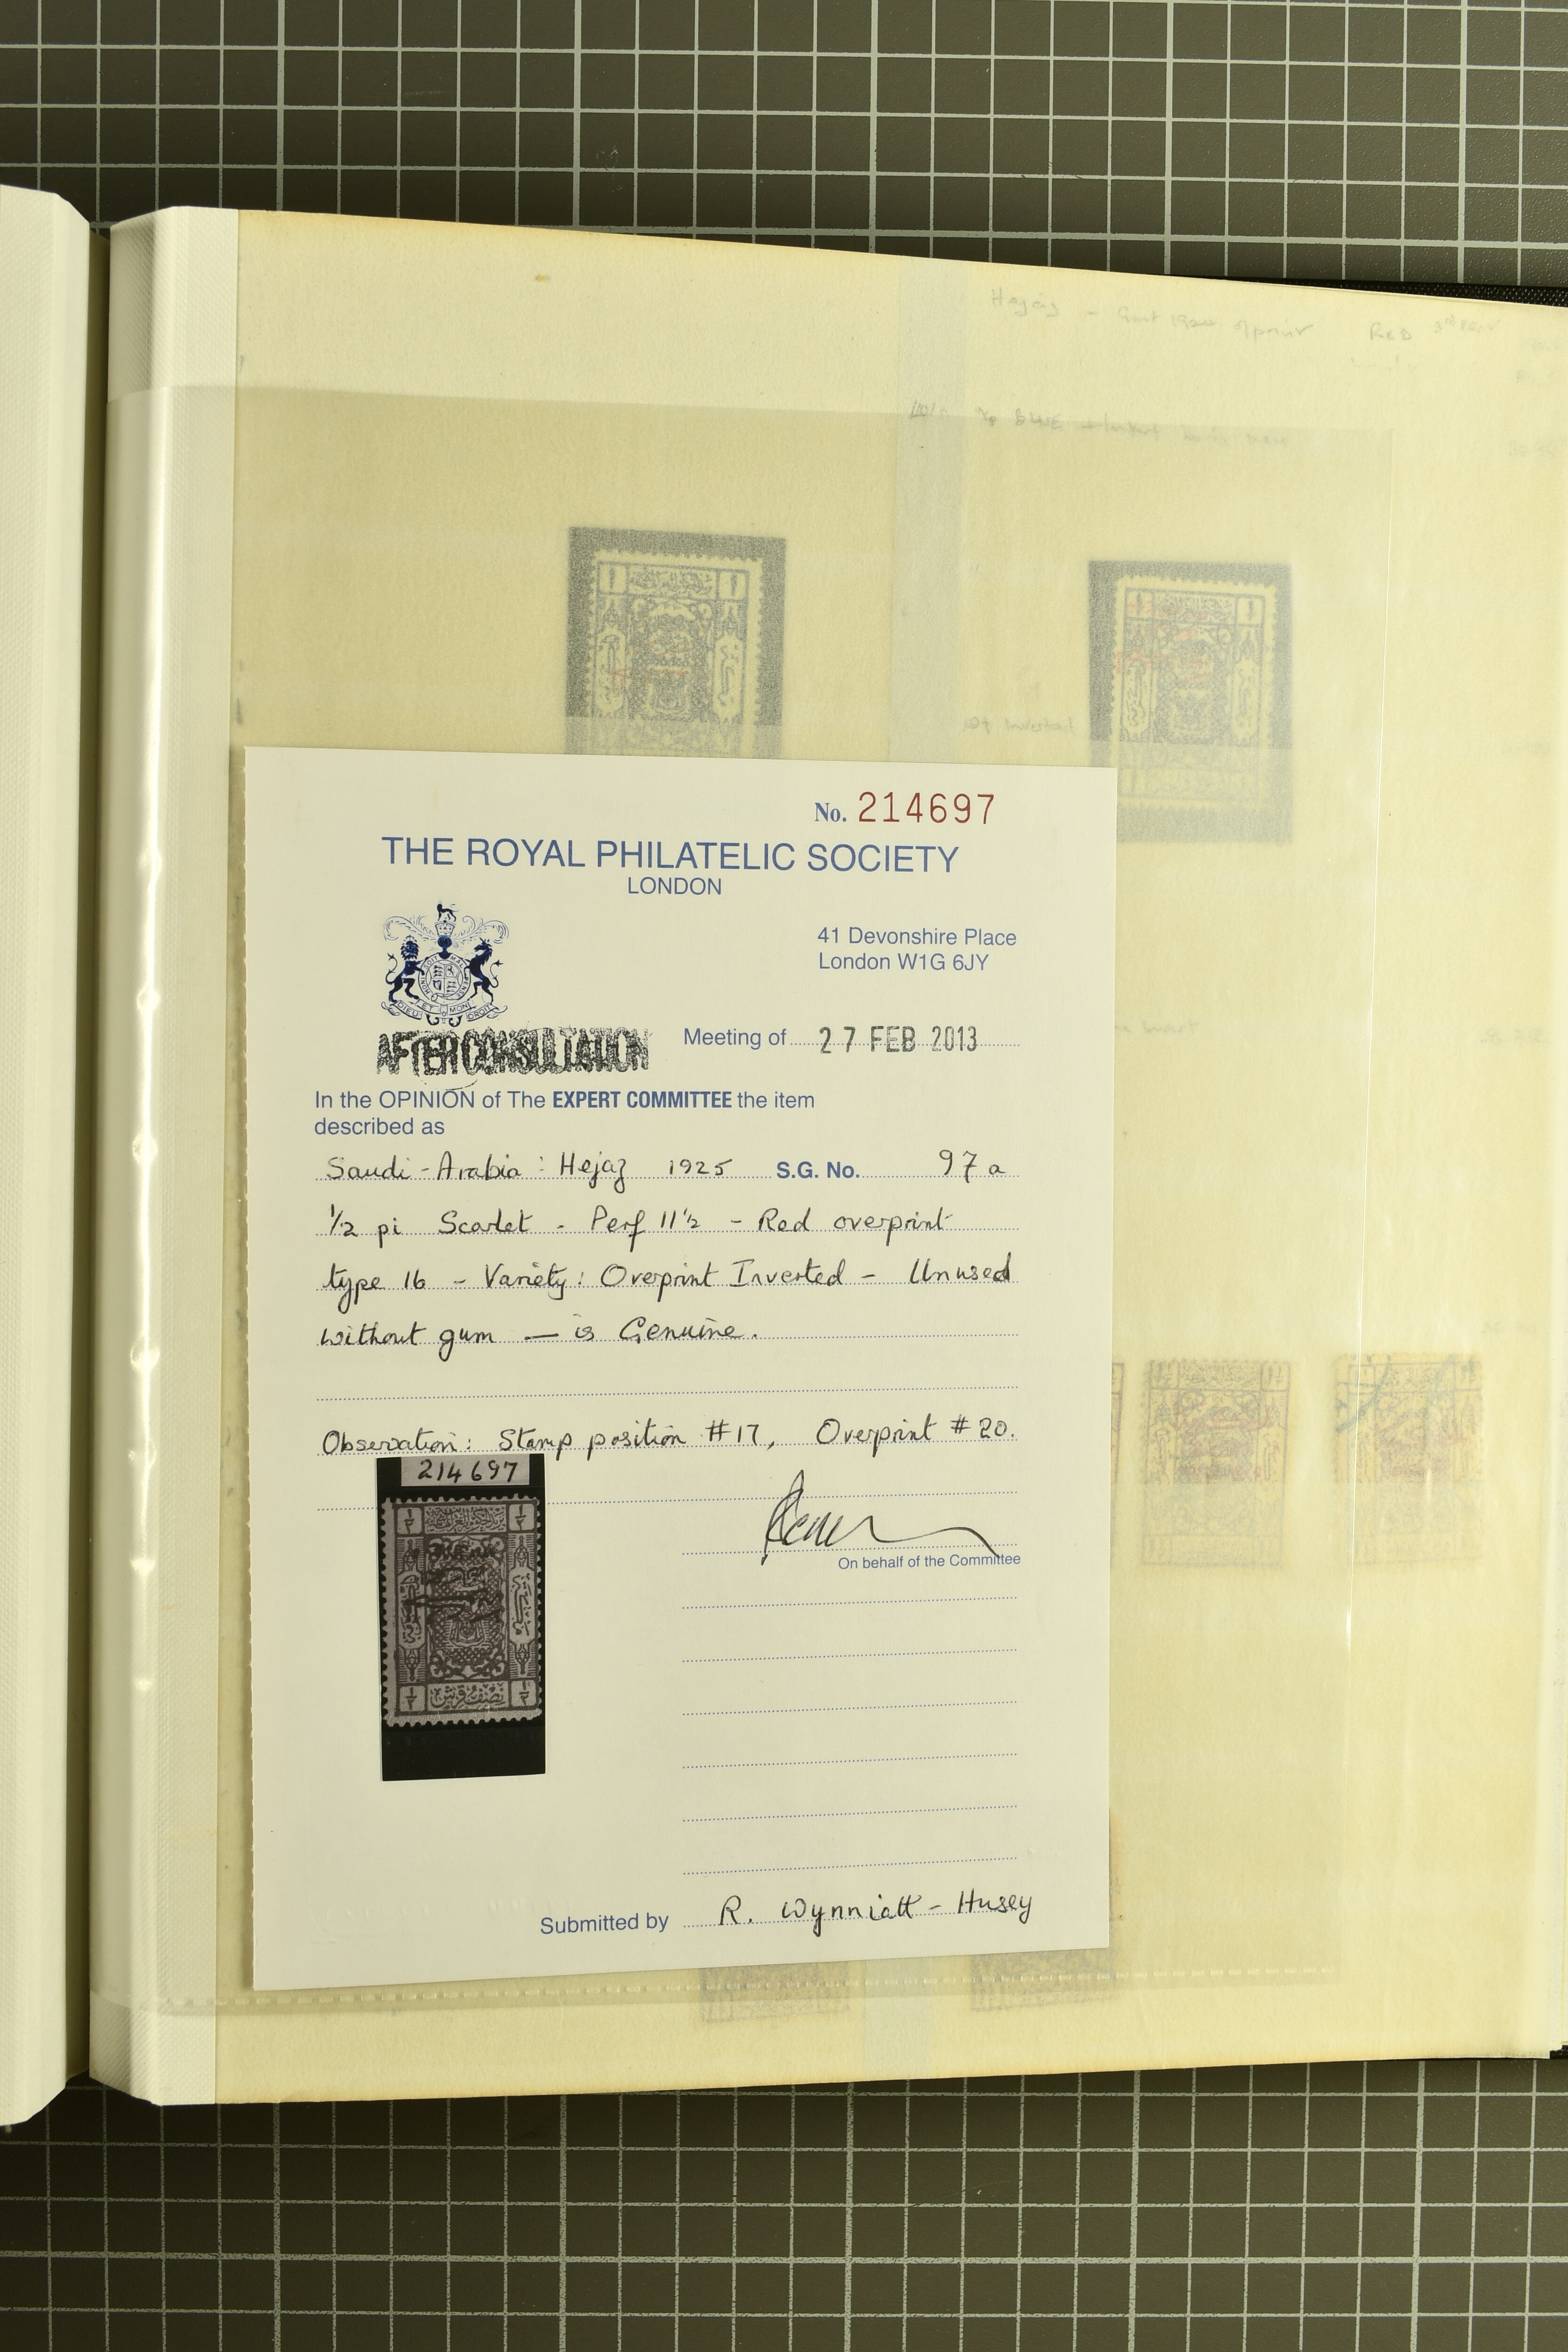 Hejaz
RED 3rd
BLUE
inverted
No. 214697
THE ROYAL PHILATELIC SOCIETY
LONDON
41 Devonshire Place
London W1G 6JY
AFTER CONSULTATION
Meeting of 27 FEB 2013
In the OPINION of The EXPERT COMMITTEE the item
described as
Saudi-Arabia: Hejaz 1925 S.G. No. 97a
1/2 pi Scarlet - Perf 11½ - Red overprint
type 16 - Variety: Overprint Inverted - Unused
without gum — is Genuine.
Observation: Stamp position #17, Overprint #20.
214697
نصف قرش
On behalf of the Committee
Submitted by R. Wynniatt-Husey